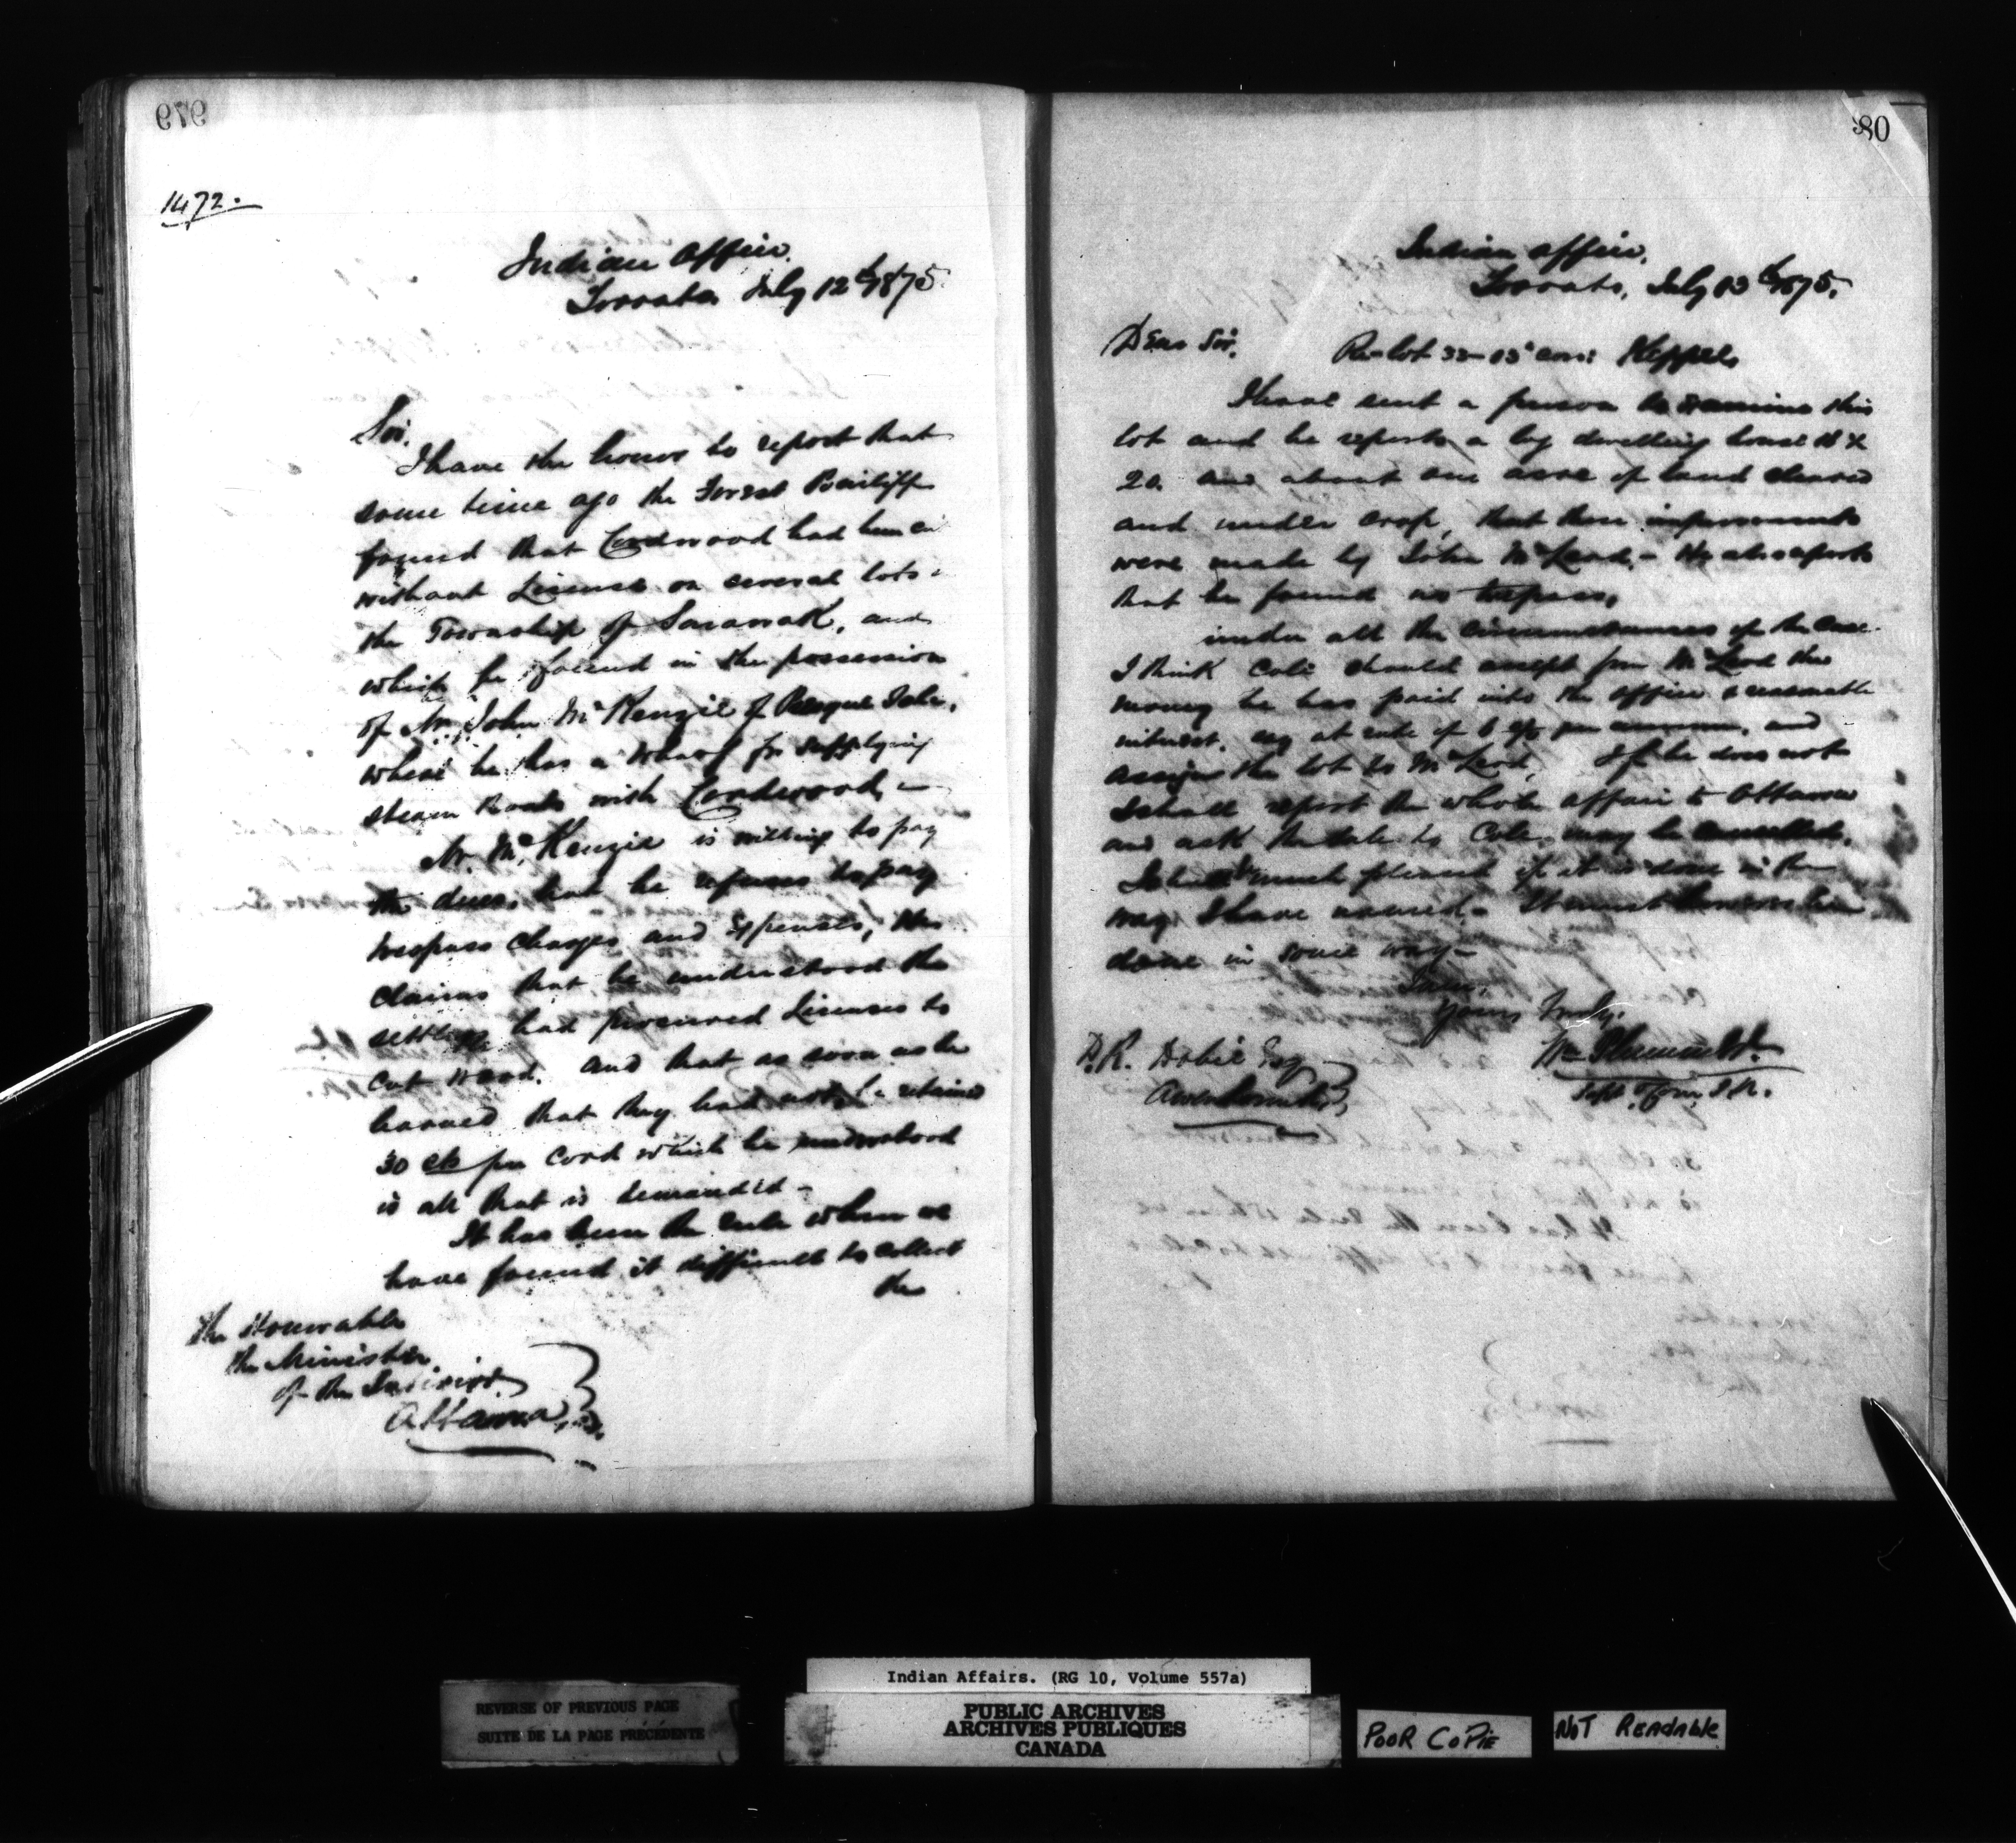 979
1472.
Indian Office.
Toronto July 12th 1875.
Sir.
I have the honor to report that
some time ago the Forest Bailiff
found that Cordwood had been
without License on several lots
the Township of Sarawak, and
which he found in the possession
of Mr. John McKenzie of Presque Isle,
where he has a Wharf for supplying
steam boats with Cordwood,-
Mr. McKenzie is willing to pay
the dues, but he refuses to pay
trespass charges and Expenses, He
claims that he understood the
settlers had procured Licenses to
cut wood. and that as soon as he
learned that they had not he retained
30 cts per Cord which he understood
is all that is demanded -
It has been the rule when we
have found it difficult to collect
the
The Honorable
the Minister
of the Interior
Ottawa
80
Indian Office.
Toronto, July 13th 1875.
Dear Sir. Re-lot 33-03 con: Keppel
I have sent a person to examine this
lot and he reports a log dwelling house 18 x
20. and about one acre of land cleared
and under crop, that these improvements
were made by John McLeod,- He also reports
that he found no trespass,
under all the circumstances of the case
I think Cole should accept from McLeod the
money he has paid into the office & reasonable
interest, say at rate of 6 % per annum, and
assign the lot to McLeod, If he does not
I shall report the whole affair to Ottawa
and ask the sale to Cole may be cancelled.
I shall be much pleased if it is done in the
way I have named - It must however be
done in some way -
Yours Truly.
Wm Plummer
Supt. & Com. I.A.
Esq
Indian Affairs. (RG 10, Volume 557a)
REVERSE OF PREVIOUS PAGE
SUITE DE LA PAGE PRÉCÉDENTE
PUBLIC ARCHIVES
ARCHIVES PUBLIQUES
CANADA
POOR COPIE
NOT READABLE